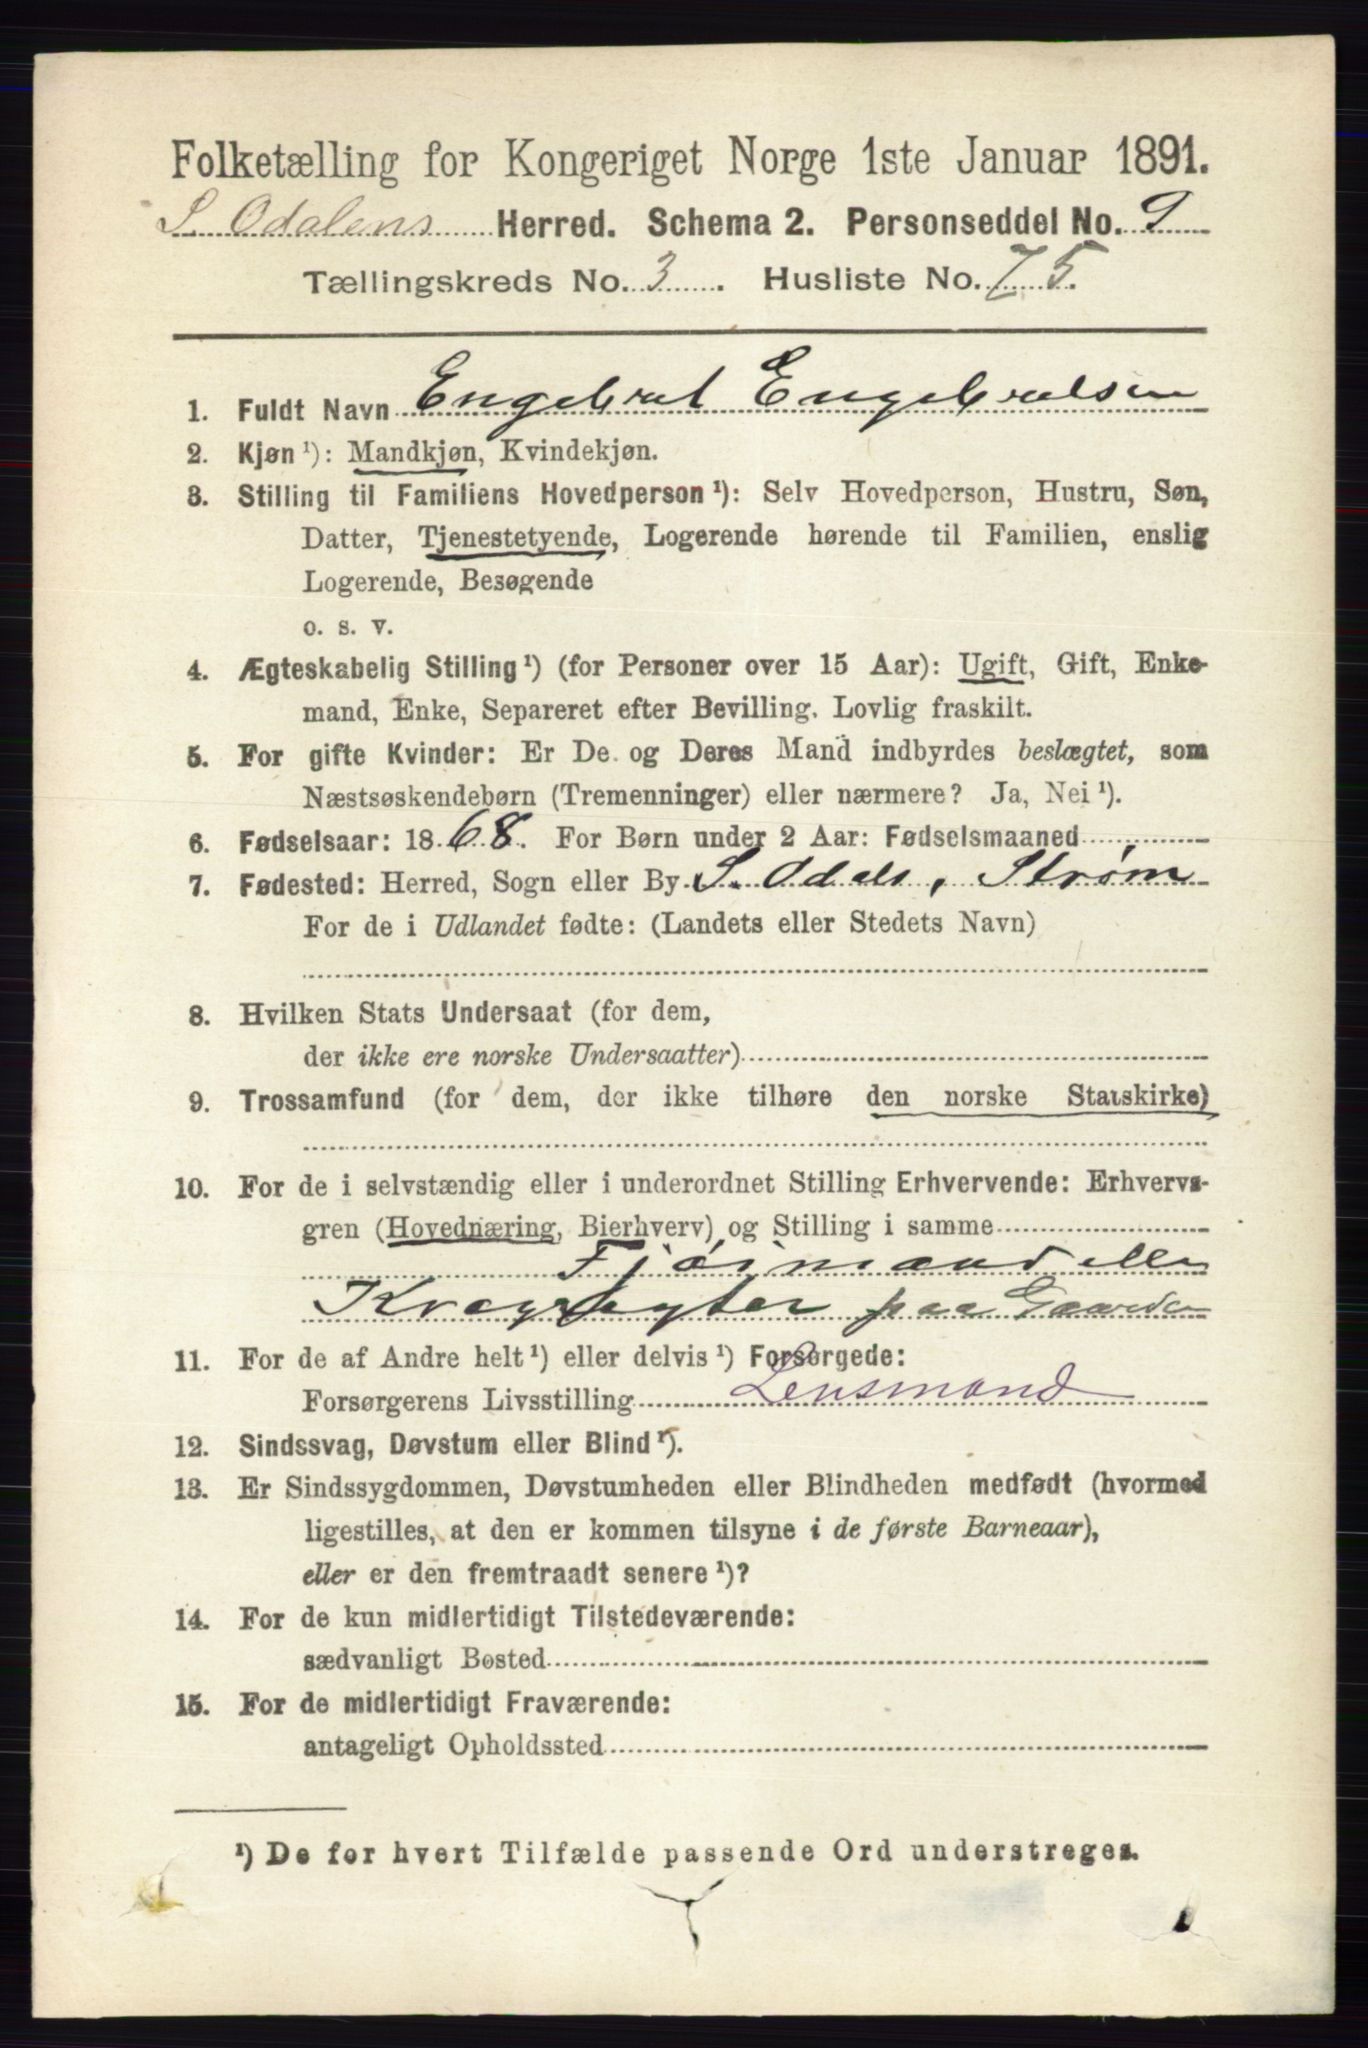 Folketælling for Kongeriget Norge 1ste Januar 1891.
S. Odalens Herred. Schema 2. Personseddel No. 9
Tællingskreds No. 3. Husliste No. 75.
1. Fuldt Navn Engebret Engebretsen
2. Kjøn ¹): Mandkjøn, Kvindekjøn.
3. Stilling til Familiens Hovedperson ¹): Selv Hovedperson, Hustru, Søn,
Datter, Tjenestetyende, Logerende hørende til Familien, enslig
Logerende, Besøgende
o. s. v.
4. Ægteskabelig Stilling ¹) (for Personer over 15 Aar): Ugift, Gift, Enke-
mand, Enke, Separeret efter Bevilling. Lovlig fraskilt.
5. For gifte Kvinder: Er De og Deres Mand indbyrdes beslægtet, som
Næstsøskendebørn (Tremenninger) eller nærmere? Ja, Nei ¹).
6. Fødselsaar: 1868. For Børn under 2 Aar: Fødselsmaaned
7. Fødested: Herred, Sogn eller By S. Odals, Strøm
For de i Udlandet fødte: (Landets eller Stedets Navn)
8. Hvilken Stats Undersaat (for dem,
der ikke ere norske Undersaatter)
9. Trossamfund (for dem, der ikke tilhøre den norske Statskirke)
10. For de i selvstændig eller i underordnet Stilling Erhvervende: Erhvervs-
gren (Hovednæring, Bierhverv) og Stilling i samme
Fjøsmand eller
Krøgrøgter paa Gaarden
11. For de af Andre helt ¹) eller delvis ¹) Forsørgede:
Forsørgerens Livsstilling Lensmand
12. Sindssvag, Døvstum eller Blind ¹).
13. Er Sindssygdommen, Døvstumheden eller Blindheden medfødt (hvormed
ligestilles, at den er kommen tilsyne i de første Barneaar),
eller er den fremtraadt senere ¹)?
14. For de kun midlertidigt Tilstedeværende:
sædvanligt Bosted
15. For de midlertidigt Fraværende:
antageligt Opholdssted
¹) De for hvert Tilfælde passende Ord understreges.